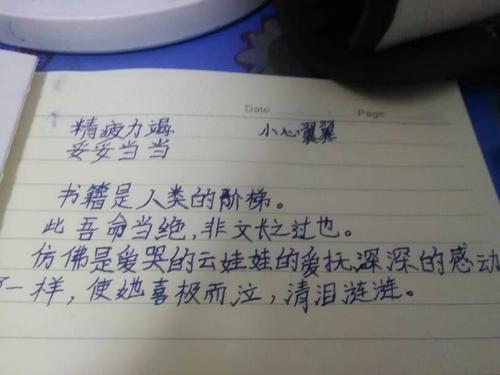 Date Page
精疲力竭 小心翼翼
妥妥当当
书籍是人类的阶梯。
此吾命当绝,非文长之过也。
仿佛是爱哭的云娃娃的爱抚深深的感动
了一样,使她喜极而泣,清泪涟涟。